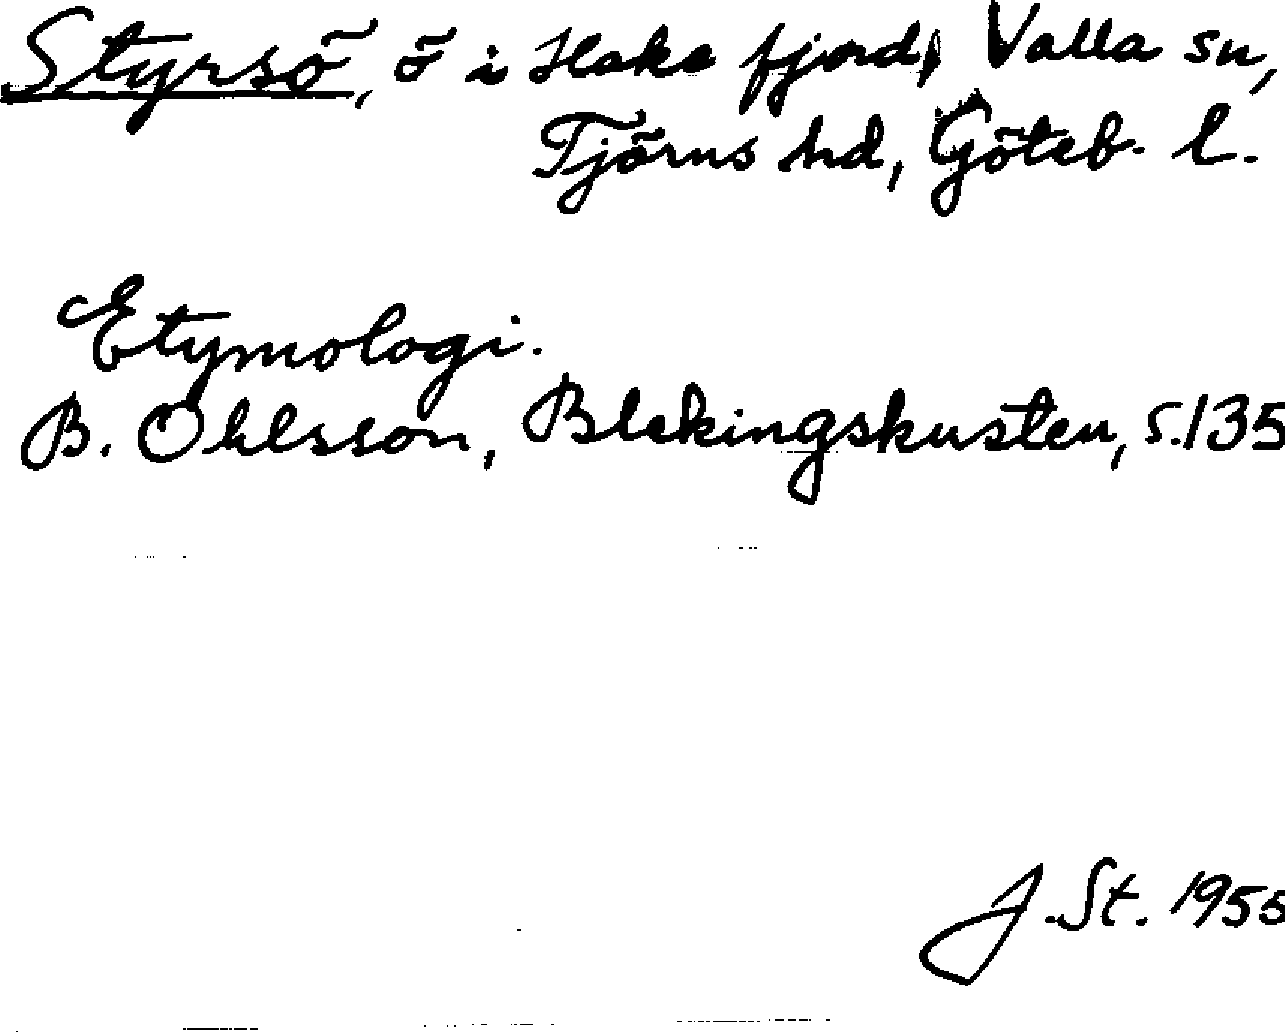 Styrsö, ö i Hake fjord, Valla sn,
Tjörns hd, Göteb. l.
Etymologi.
B. Ohlsson, Blekingskusten, s. 135
J. St. 1955